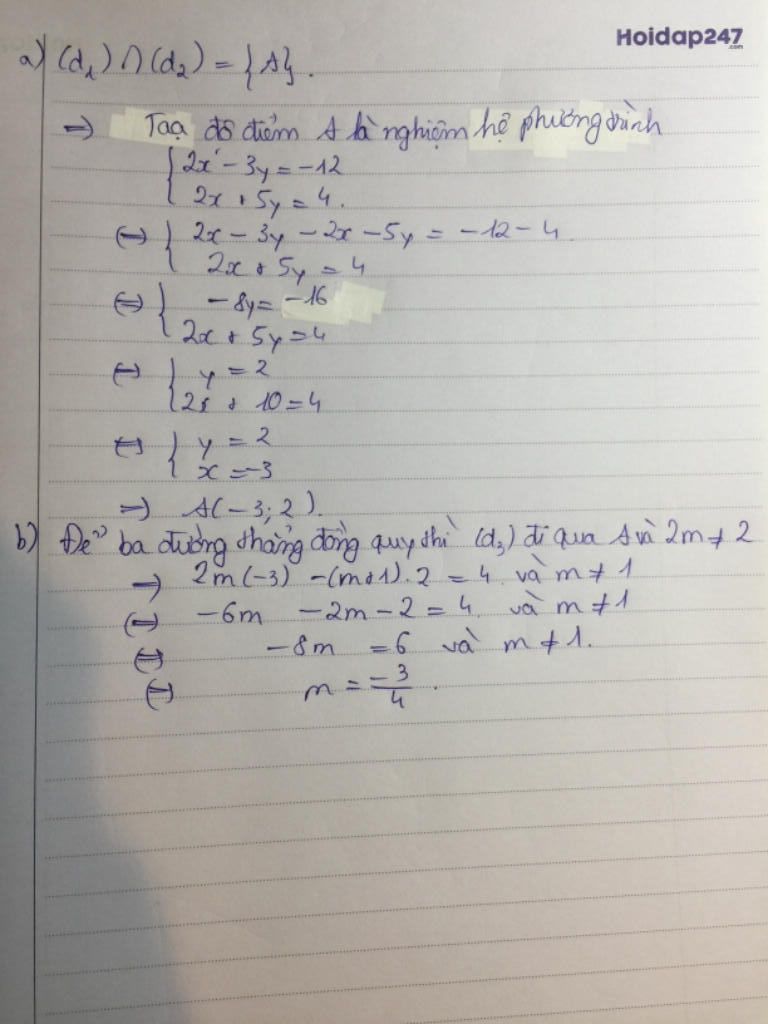 Hoidap247
.com
a) (d₁) ∩ (d₂) = {A}.
=> Toạ độ điểm A là nghiệm hệ phương trình
{ 2x - 3y = -12
2x + 5y = 4.
<=> { 2x - 3y - 2x - 5y = -12 - 4
2x + 5y = 4
<=> { -8y = -16
2x + 5y = 4
<=> { y = 2
2x + 10 = 4
<=> { y = 2
x = -3
=> A(-3; 2).
b) Để ba đường thẳng đồng quy thì (d₃) đi qua A và 2m ≠ 2
=> 2m(-3) - (m+1).2 = 4 và m ≠ 1
<=> -6m - 2m - 2 = 4 và m ≠ 1
<=> -8m = 6 và m ≠ 1.
<=> m = -3/4.